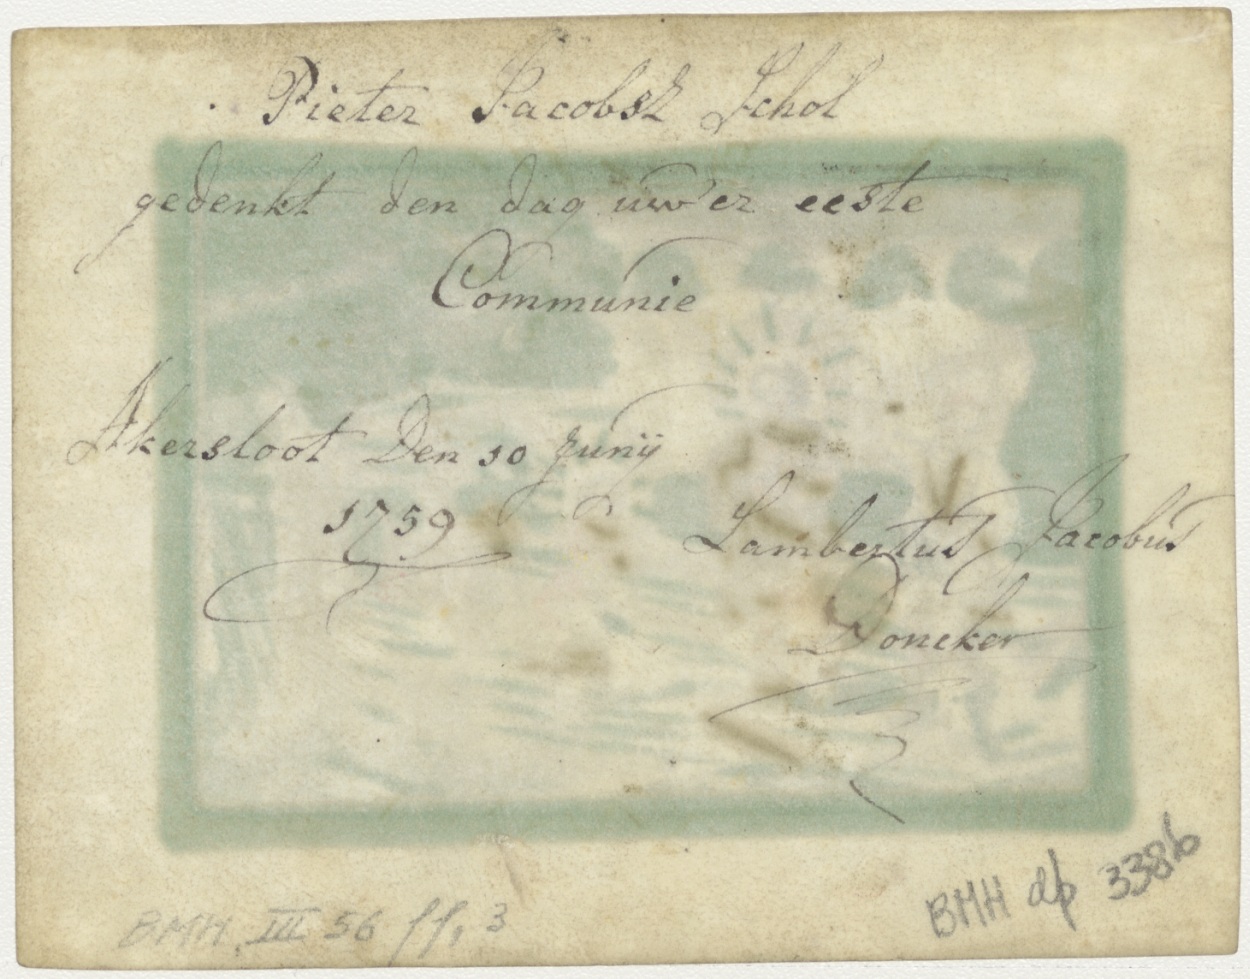 Pieter Jacobsz Schol
gedenkt den dag uwer eeste
Communie
Akersloot Den 10 Junij
1759
Lambertus Jacobus
Doncker
BMH III 56 ff, 3
BMH dp 3386